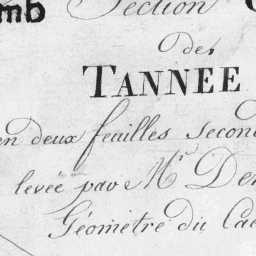 mb Section
de
TANNEE
en deux feuilles Secon
levée par Mr De
Géomètre du Ca